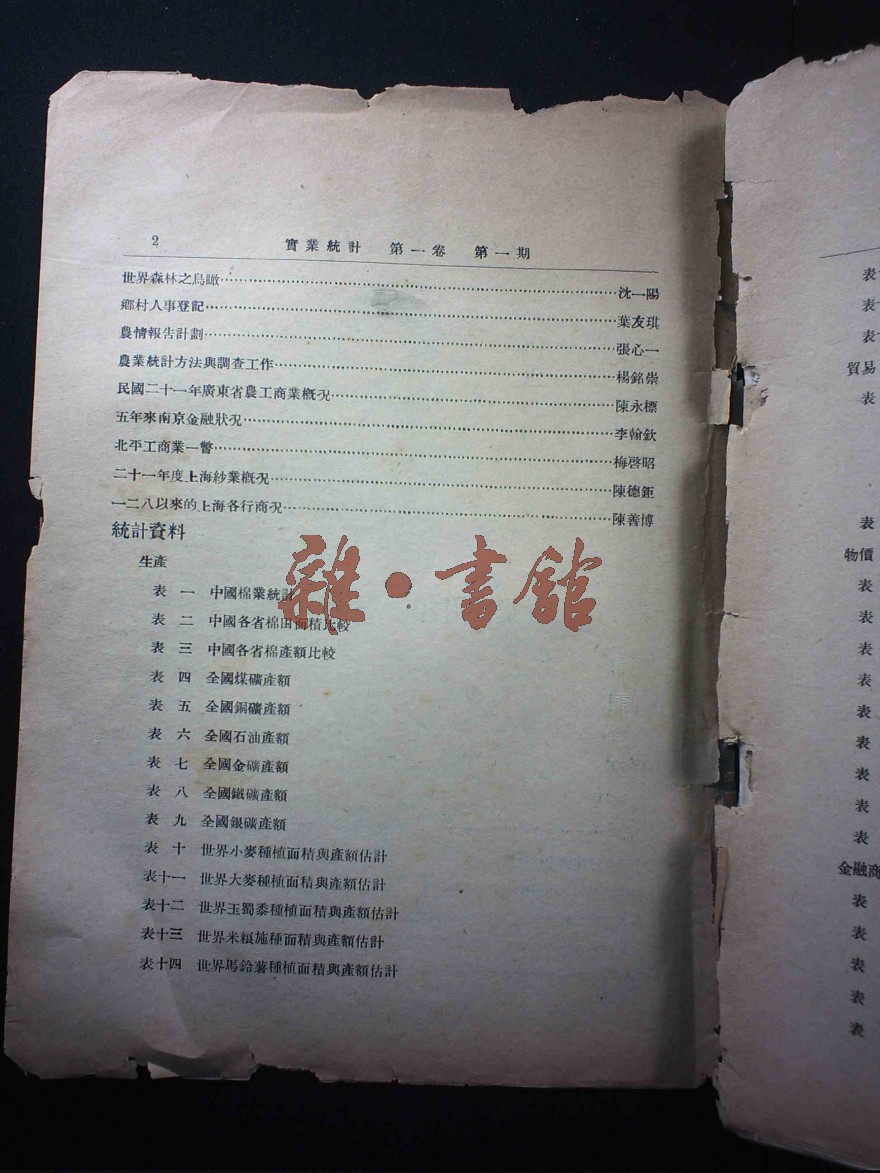 2 實業統計 第一卷 第一期
世界森林之鳥瞰……沈一陽
鄉村人事登記……葉友琪
農情報告計劃……張心一
農業統計方法與調查工作……楊銘崇
民國二十一年廣東省農工商業概況……陳永標
五年來南京金融狀況……李翰欽
北平工商業一瞥……梅啓昭
二十一年度上海紗業概況……陳德鉅
一二八以來的上海各行商況……陳善博
統計資料
生產
表一 中國棉業統計
表二 中國各省棉田面積比較
表三 中國各省棉產額比較
表四 全國煤礦產額
表五 全國銅礦產額
表六 全國石油產額
表七 全國金礦產額
表八 全國鐵礦產額
表九 全國銀礦產額
表十 世界小麥種植面積與產額估計
表十一 世界大麥種植面積與產額估計
表十二 世界玉蜀黍種植面積與產額估計
表十三 世界米穀施種面積與產額估計
表十四 世界馬鈴薯種植面積與產額估計
雜·書館
表
表
表
貿易
表
表
物價
表
表
表
表
表
表
表
表
表
金融商
表
表
表
表
表